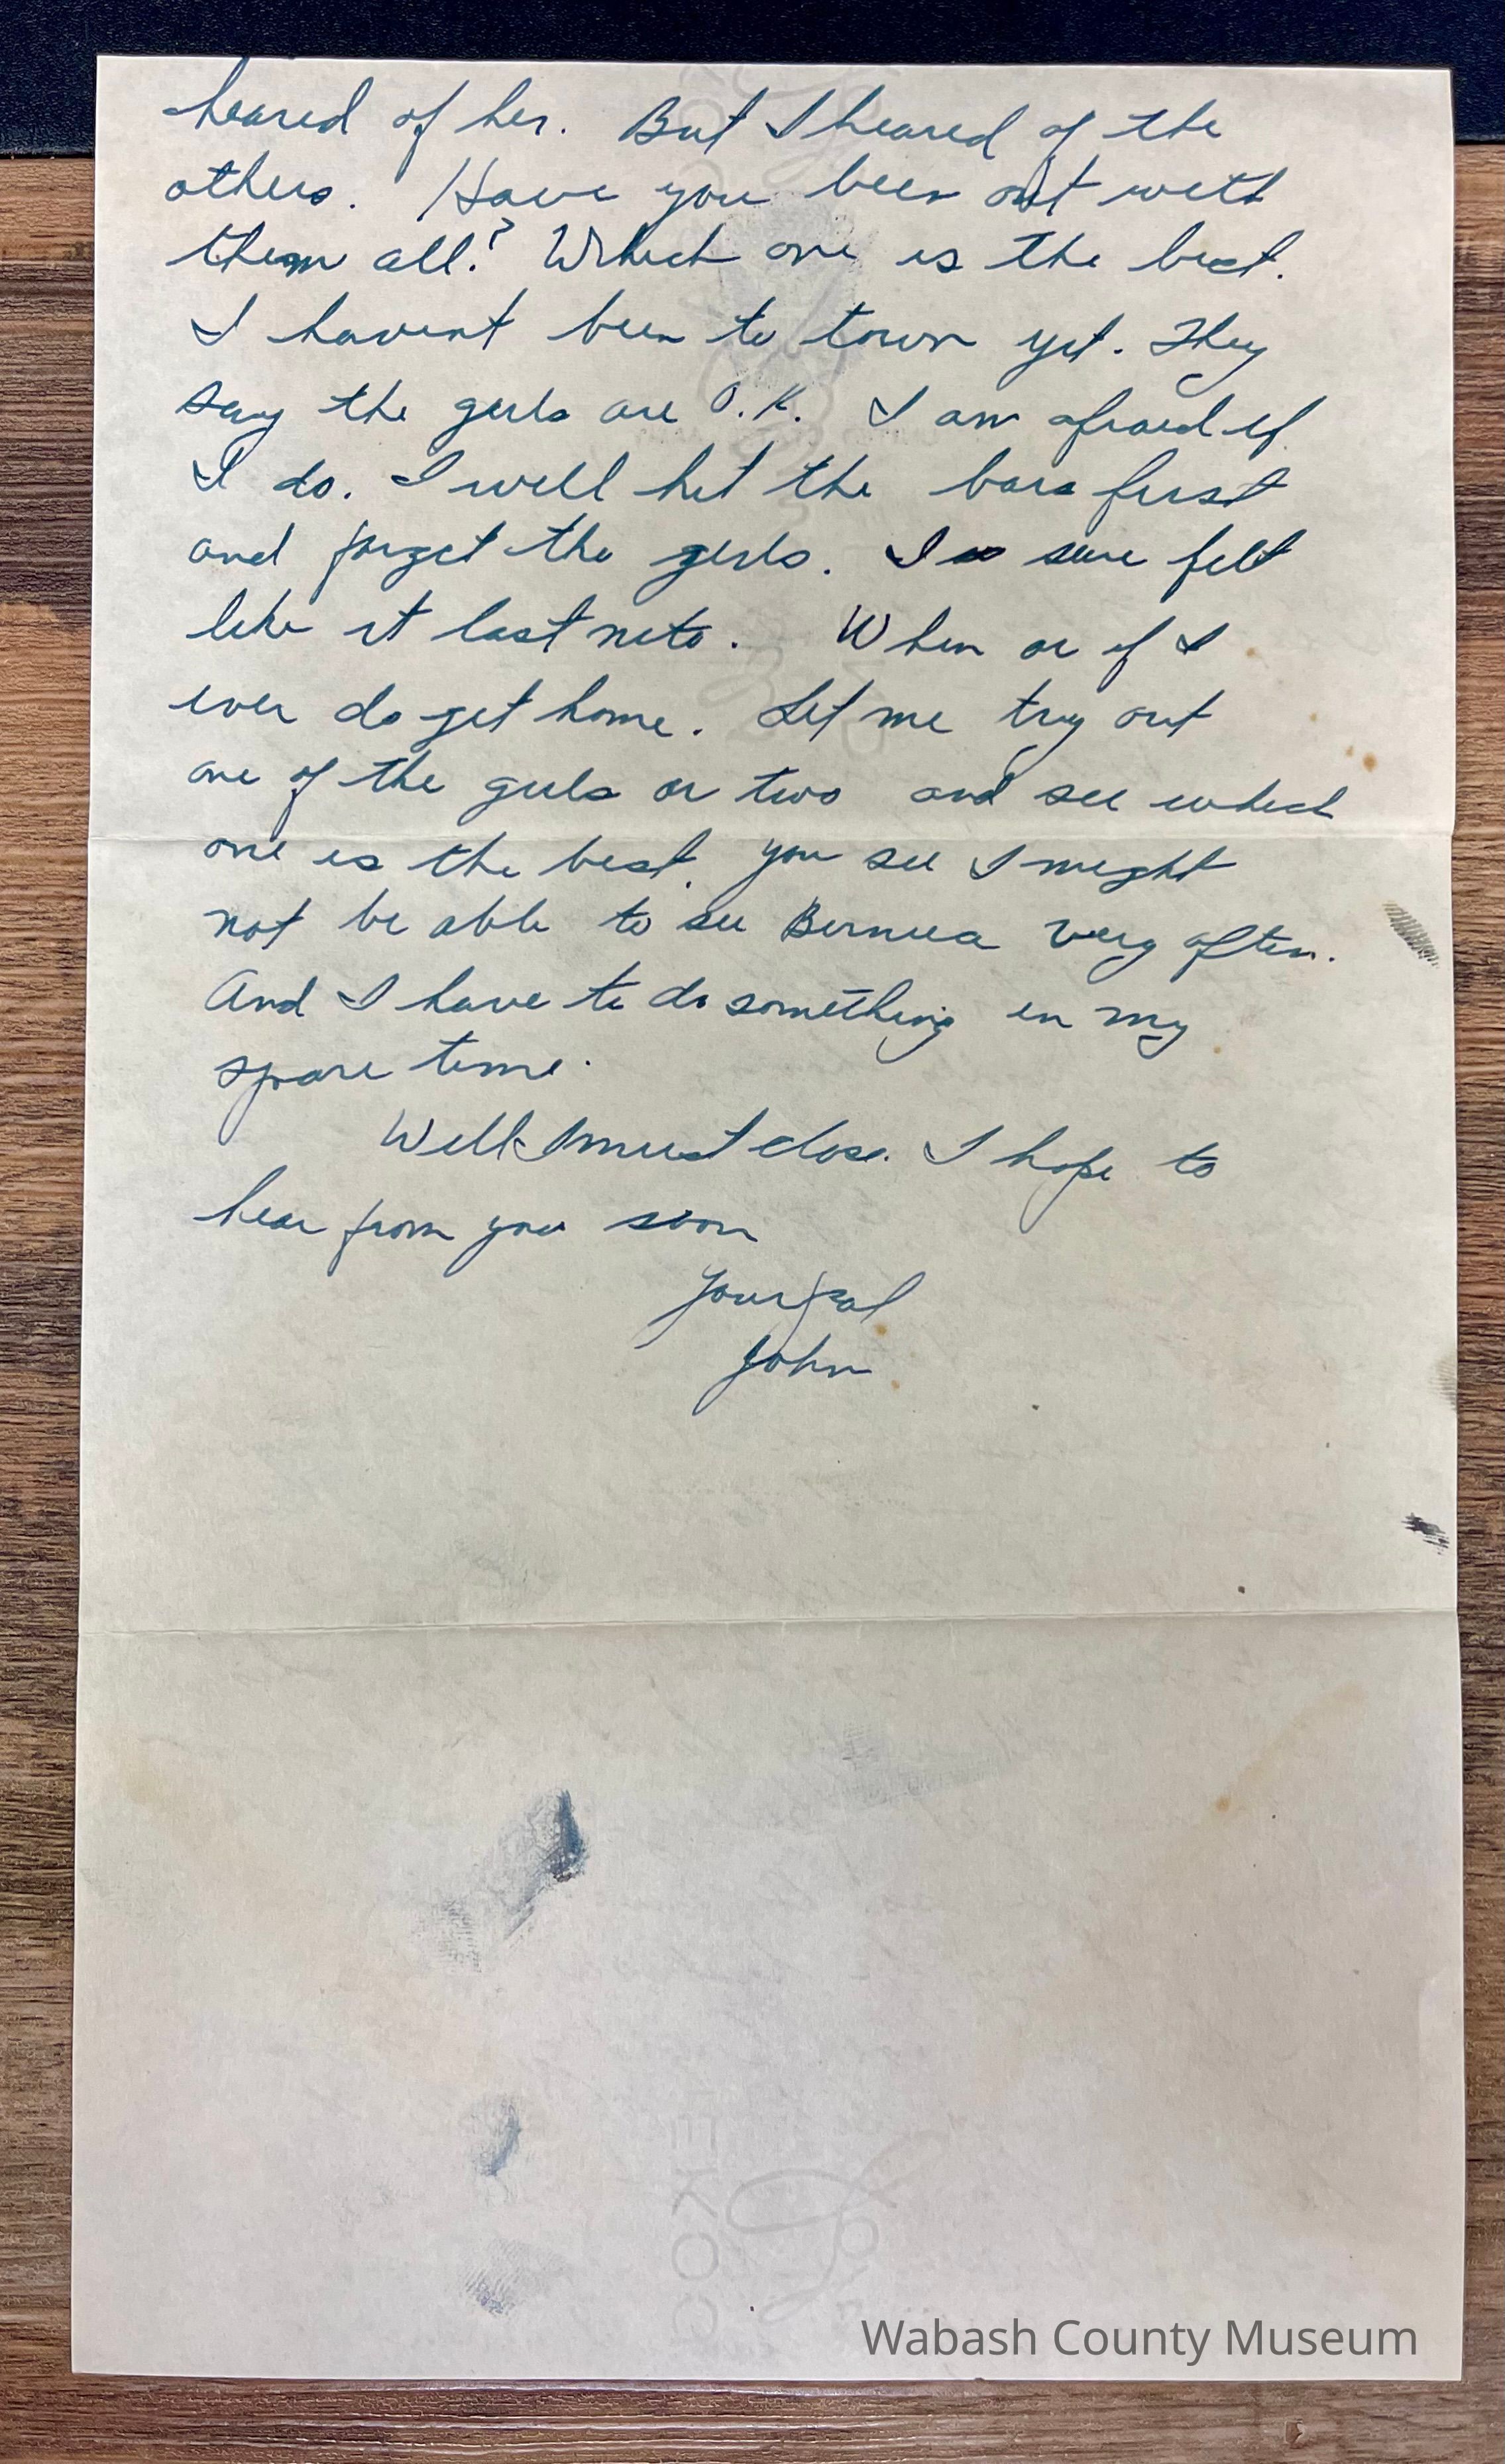 heared of her. But I heared of the
others. Have you been out with
them all? Which one is the best.
I havent been to town yet. They
say the girls are O.K. I am afraid if
I do. I will hit the bars first
and forget the girls. I sure felt
like it last nite. When or if I
ever do get home. Let me try out
one of the girls or two and see which
one is the best. you see I might
not be able to see very often.
And I have to do something in my
spare time.
Well I must close. I hope to
hear from you soon
Your pal
John
COKE
Wabash County Museum